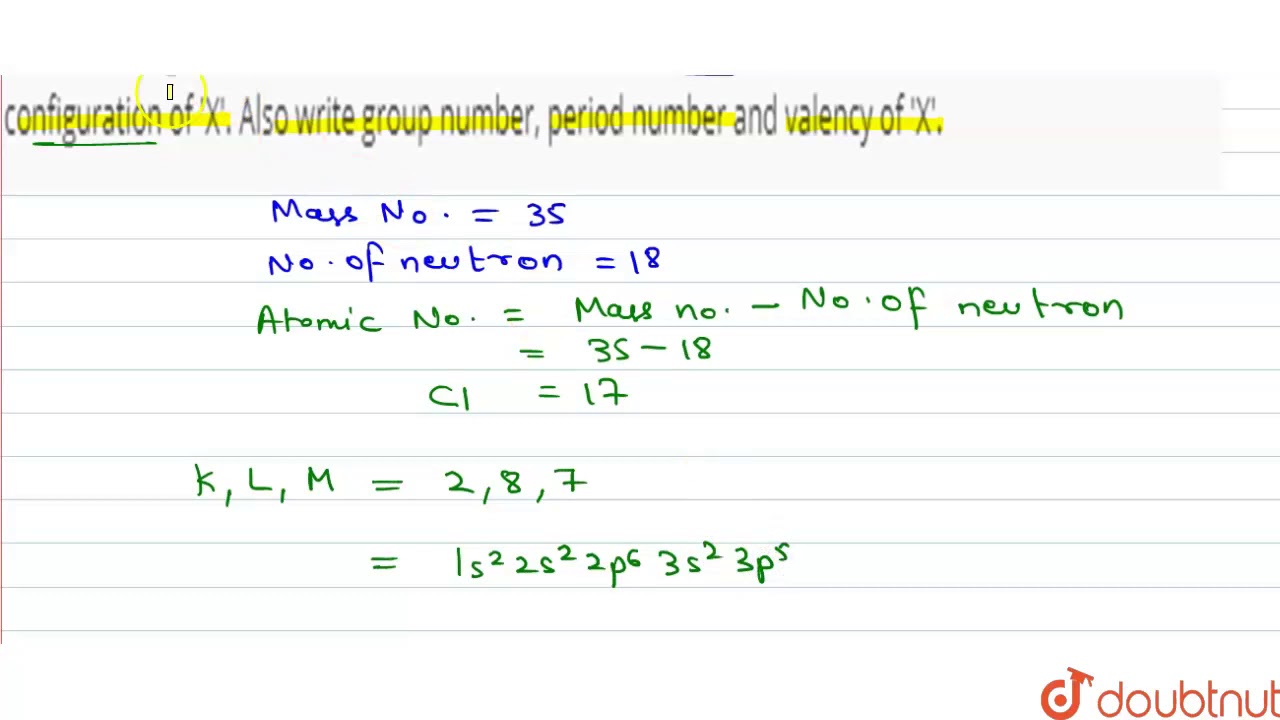 configuration of 'X'. Also write group number, period number and valency of 'X'.
Mass No. = 35
No. of neutron = 18
Atomic No. = Mass no. - No. of neutron
= 35 - 18
Cl = 17
K, L, M = 2, 8, 7
= 1s² 2s² 2p⁶ 3s² 3p⁵
doubtnut